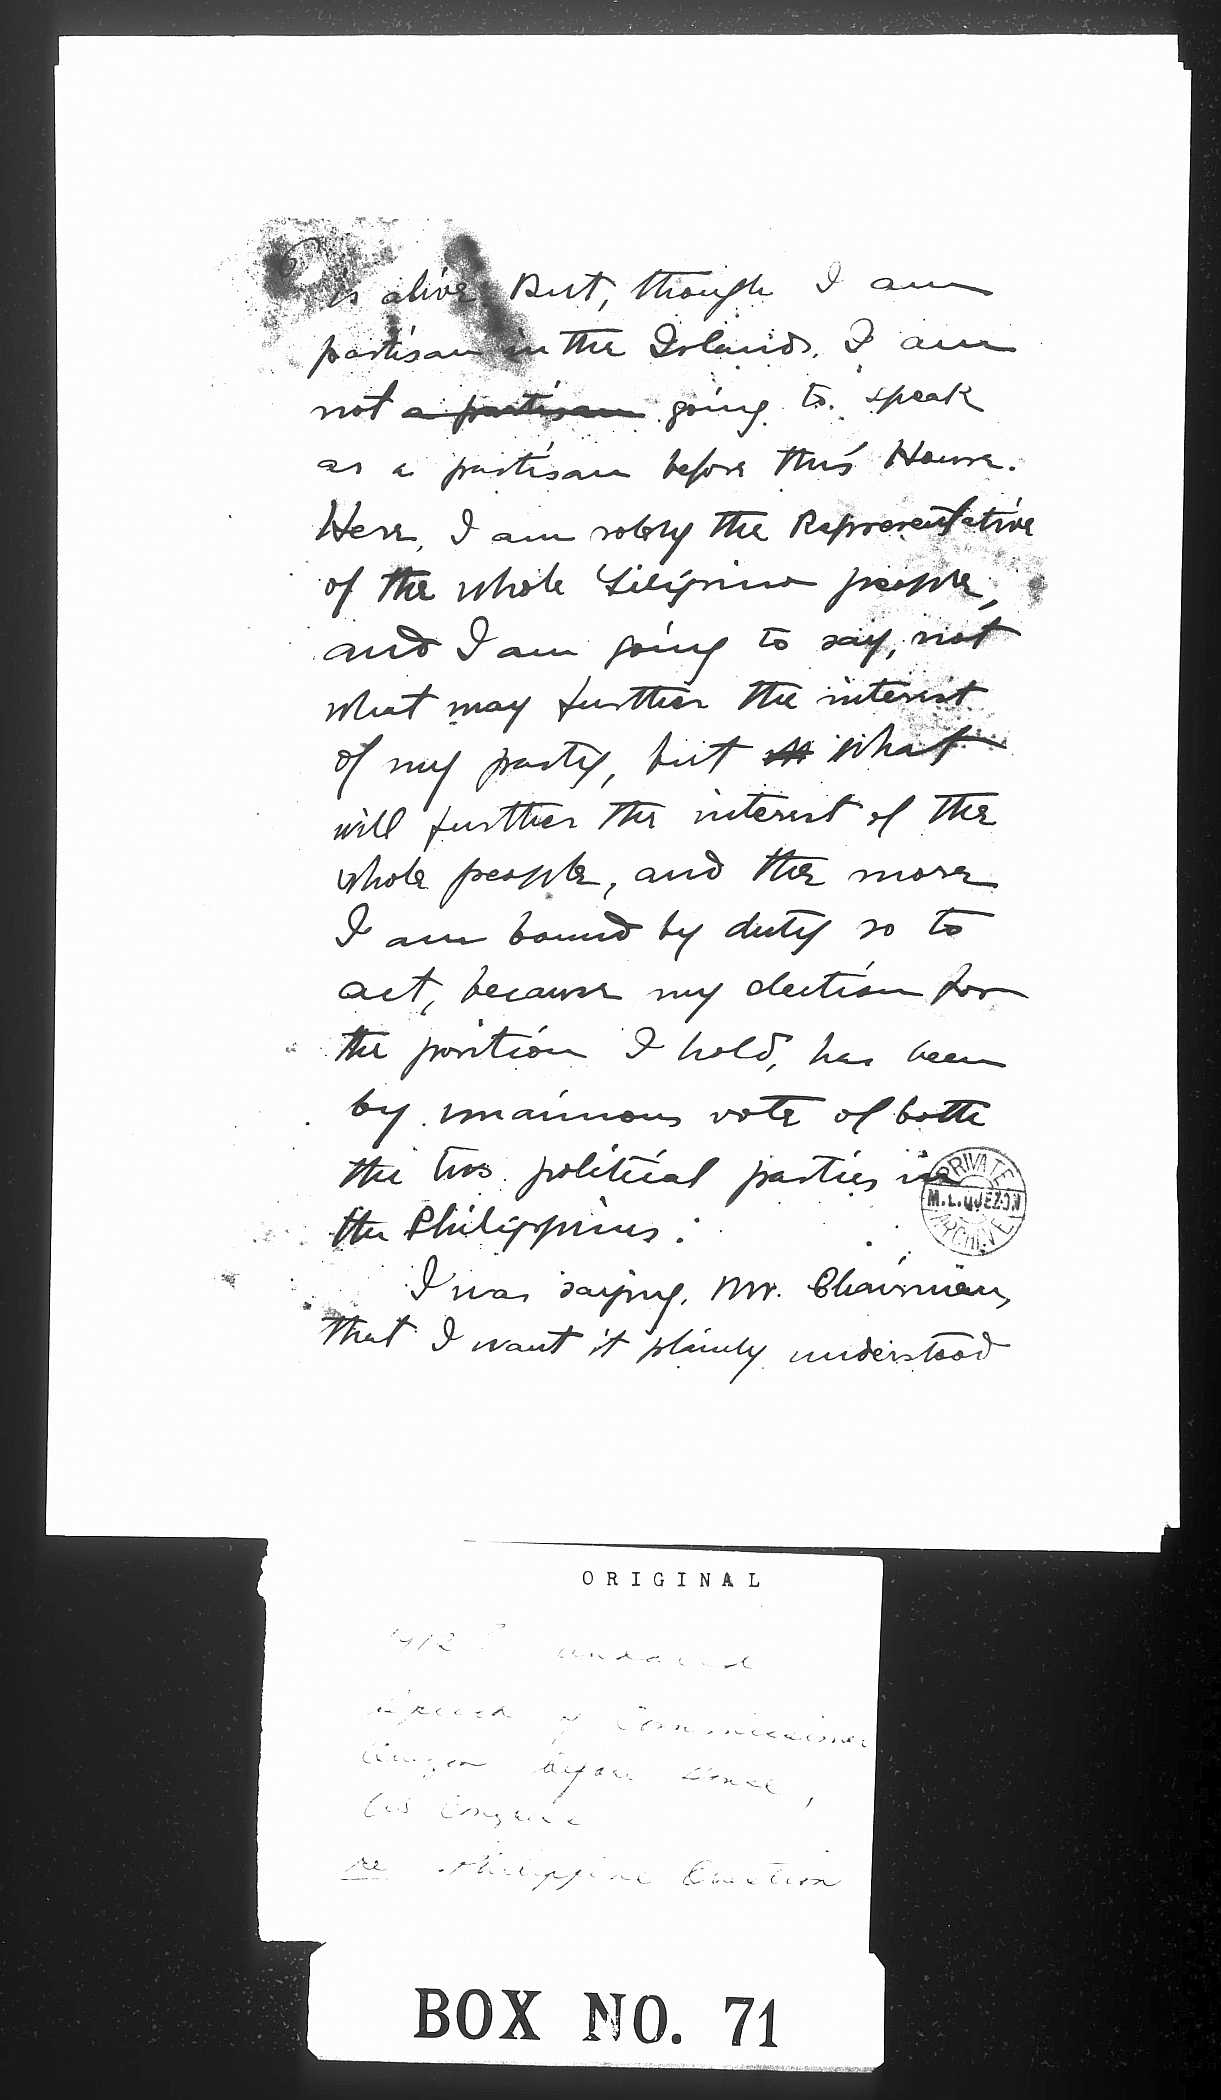 6
is alive. But, though I am
partisan in the Islands, I am
not a partisan going to speak
as a partisan before this House.
Here, I am solely the Representative
of the whole Filipino people,
and I am going to say, not
what may further the interest
of my party, but what
will further the interest of the
whole people, and the more
I am bound by duty so to
act, because my election for
the position I hold, has been
by unanimous vote of both
the two political parties in
the Philippines.
I was saying, Mr. Chairman,
that I want it plainly understood
PRIVATE
M.L.QUEZON
ARCHIVE
ORIGINAL
1912? undated
Speech of Commissioner
Quezon before House,
US Congress
re Philippine Question
BOX NO. 71